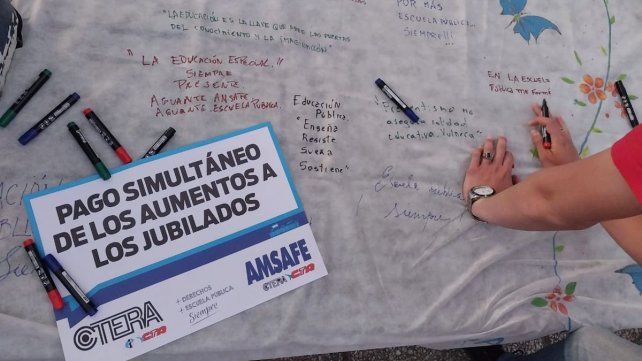 "LA EDUCACIÓN ES LA LLAVE QUE ABRE LAS PUERTAS
DEL CONOCIMIENTO Y LA IMAGINACIÓN"
POR MÁS
ESCUELA PÚBLICA
SIEMPRE!!!
"LA EDUCACIÓN ESPECIAL"
SIEMPRE
PRESENTE
AGUANTE AMSAFE
AGUANTE ESCUELA PÚBLICA.
Educación
Pública.
"Enseña
Resiste
Sueña
Sostiene"
no
calidad
educativa.
EN LA ESCUELA
PÚBLICA me formé
Escuela pública
siempre!
PAGO SIMULTÁNEO
DE LOS AUMENTOS A
LOS JUBILADOS
CTERA
CTA
+ DERECHOS
+ ESCUELA PÚBLICA
Siempre
AMSAFE
CTERA CTA